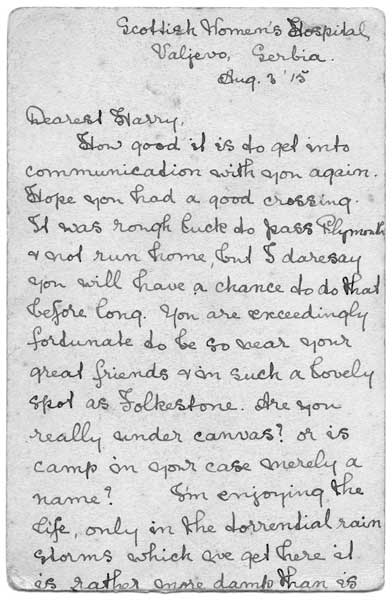 Scottish Women's Hospital,
Valjevo, Serbia.
Aug. 3 '15
Dearest Harry,
How good it is to get into
communication with you again.
Hope you had a good crossing.
It was rough luck to pass Plymouth
& not run home, but I daresay
you will have a chance to do that
before long. You are exceedingly
fortunate to be so near your
great friends & in such a lovely
spot as Folkestone. Are you
really under canvas? or is
camp in your case merely a
name? I'm enjoying the
life, only in the torrential rain
storms which we get here it
is rather more damp than is